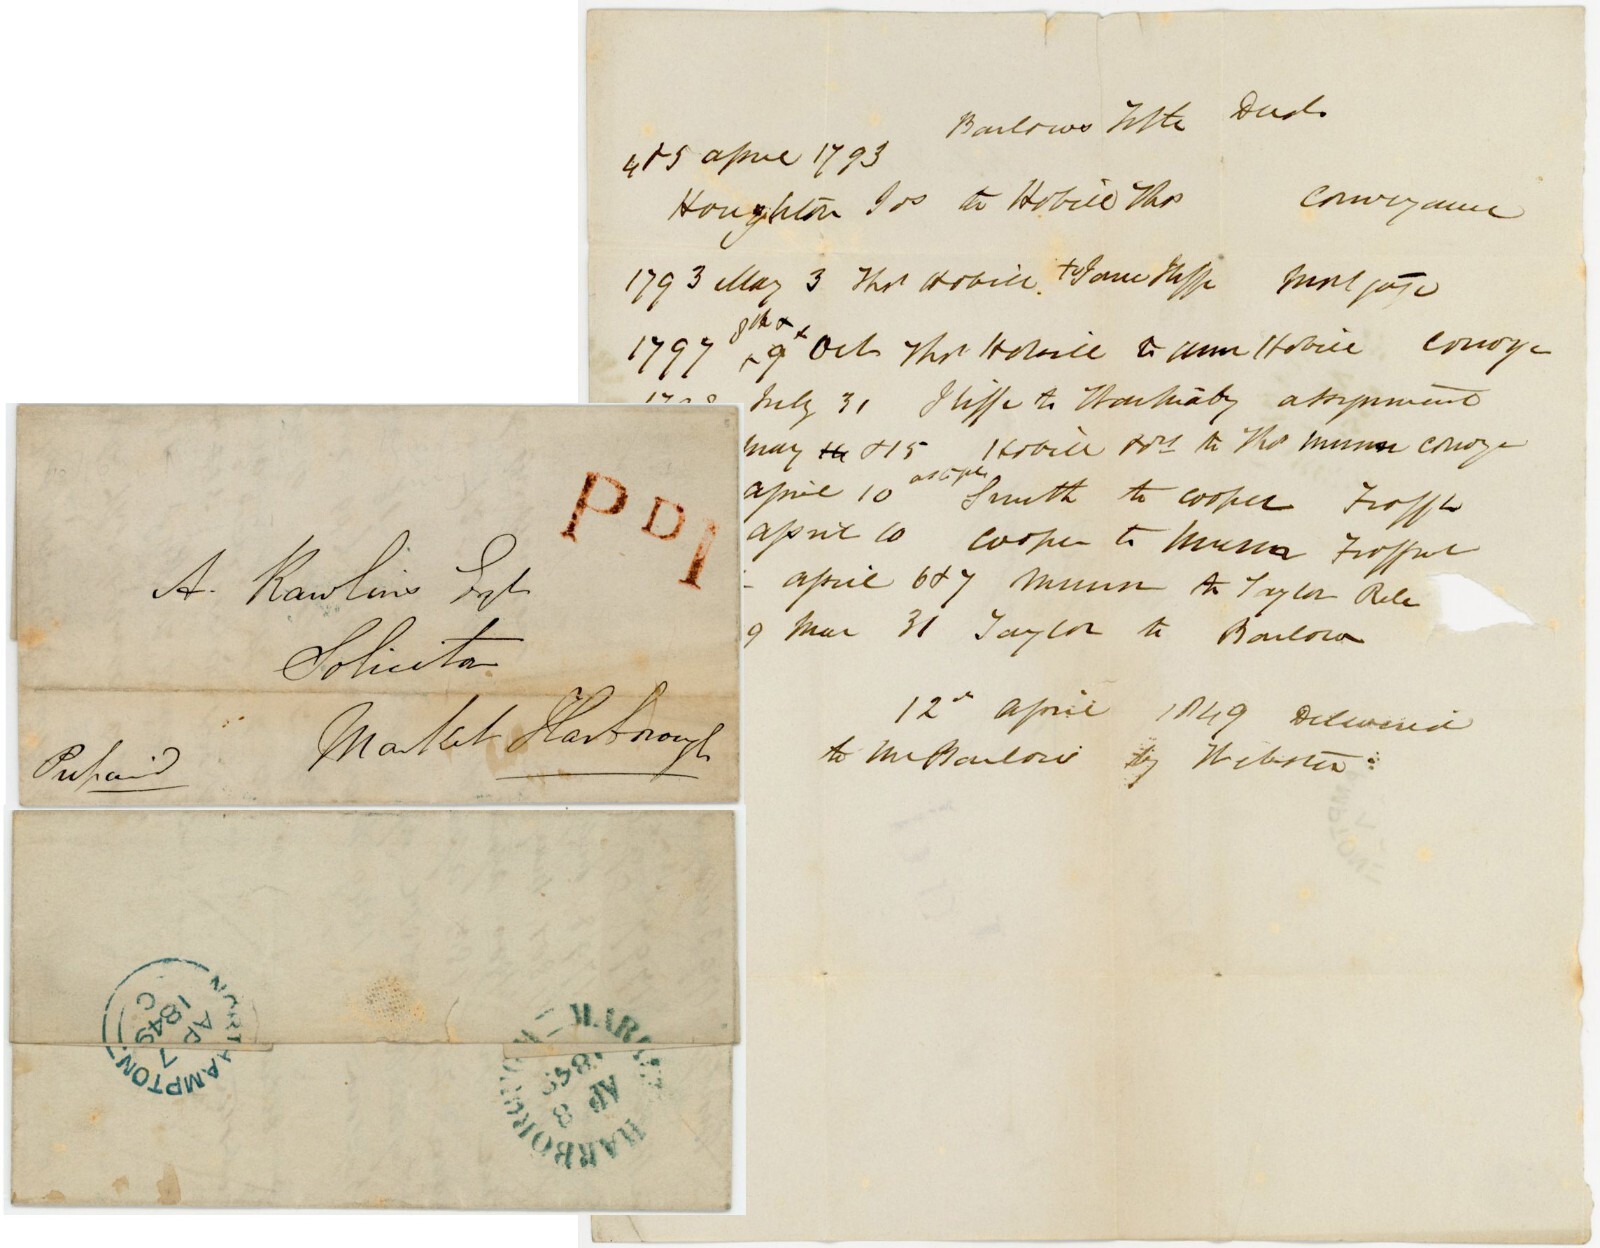 Barlows Title Deeds
4 & 5 april 1793
Houghton Jos to Hobill Thos Conveyance
1793 May 3 Thos Hobill to Jane Iliffe Mortgage
1797 8th & 9th Oct Thos Hobill to ann Hobill Convey
July 31 Iliffe to assignment
May & 15 Hobill to Thos Munn Convey
april 10 Smith to Cooper
april 10 Cooper to Munn
april 6 & 7 Munn to Taylor Rele
9 Mar 31 Taylor to Barlow
12th april 1849 Delivered
to Mr Barlow by Webster
PD1
A. Rawlins Esqr
Solicitor
Market Harborough
Prepaid
NORTHAMPTON
AP 7
1849
C
MARKET HARBOROUGH
AP 8